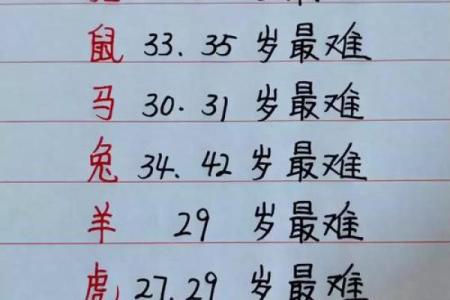 鼠 33.35 岁最难
马 30.31 岁最难
兔 34.42 岁最难
羊 29 岁最难
虎 27.29 岁最难